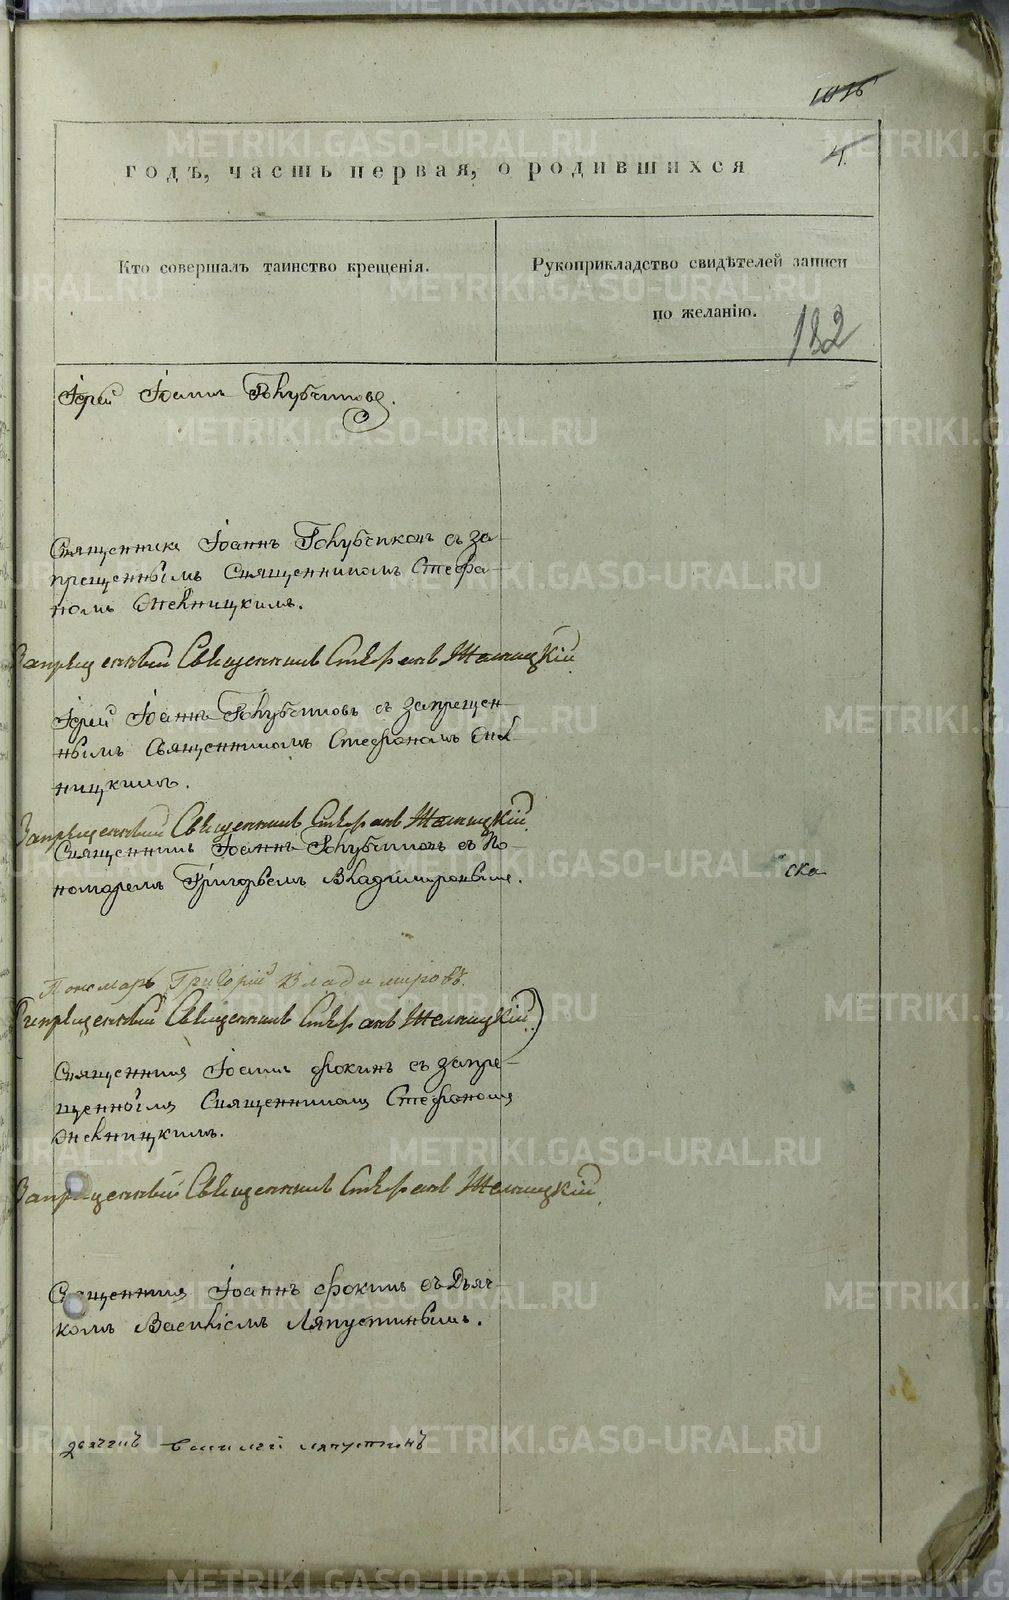 1016
4.
годъ, часть первая, о родившихся
Кто совершалъ таинство крещенія.
Рукоприкладство свидѣтелей записи
по желанію.
182
Іерей Іоаннъ Голубчиковъ.
Священникъ Іоаннъ Голубчиковъ съ за-
прещеннымъ Священникомъ Стефа-
номъ
Запрещенный Священникъ Стефанъ
Іерей Іоаннъ Голубчиковъ съ запрещен-
нымъ Священникомъ Стефаномъ
ницкимъ.
Запрещенный Священникъ Стефанъ
Священникъ Іоаннъ Голубчиковъ съ По-
номаремъ Григорьемъ Владимировымъ.
ска
Пономарь Григорій Владимировъ.
Запрещенный Священникъ Стефанъ
Священникъ Іоаннъ Фокинъ съ запре-
щеннымъ Священникомъ Стефаномъ
Запрещенный Священникъ Стефанъ
Священникъ Іоаннъ Фокинъ съ Дьяч-
комъ Василіемъ Ляпустинымъ.
дьячекъ василей ляпустинъ
METRIKI.GASO-URAL.RU